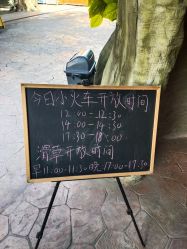 今日小火车开放时间
12:00-12:30
14:00-14:30
17:30-18:00
滑草开放时间
早11:00-11:30晚17:00-17:30